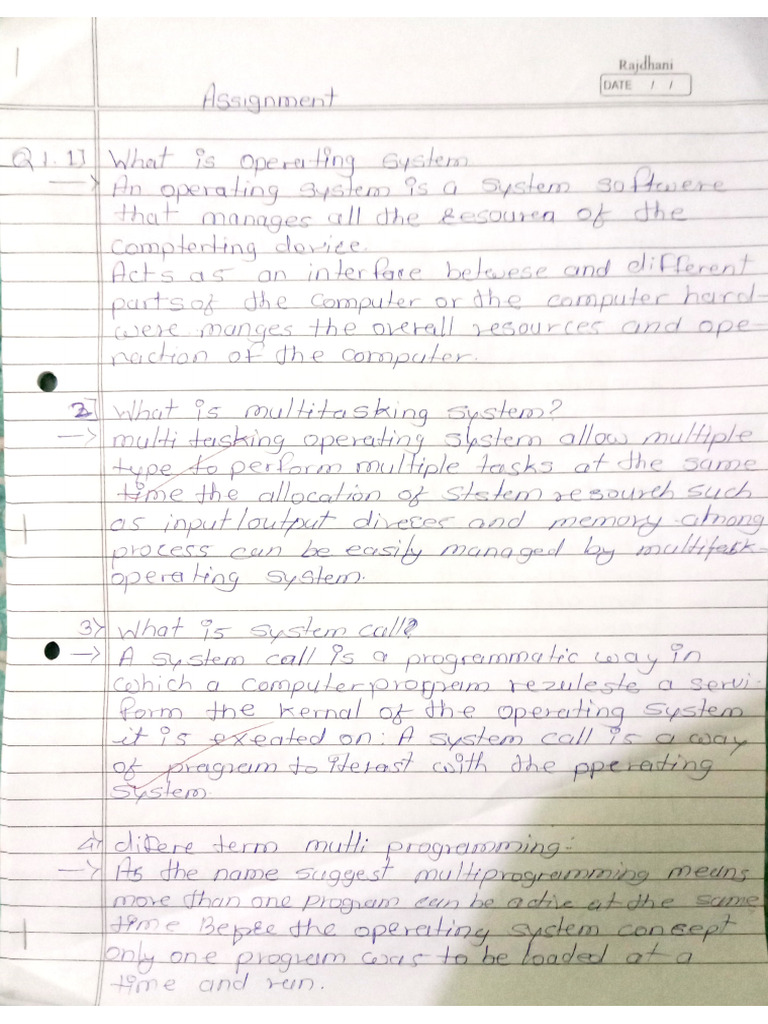 Rajdhani
DATE / /
Assignment
Q1.1] What is operating system
→ An operating system is a system softwere
that manages all the Resourea of the
compterting device.
Acts as an interface betwese and different
parts of the computer or the computer hard-
were manges the overall resources and ope-
raction of the computer.
2] What is multitasking system?
→ multi tasking operating system allow multiple
type to perform multiple tasks at the same
time the allocation of System resourch such
as input/output direces and memory among
process can be easily managed by multitask-
operating system.
3) What is system call?
→ A system call is a programmatic way in
which a computer program rezuleste a servi-
form the kernal of the operating system
it is exeated on: A system call is a way
of pragram to iterast with the pperating
system.
4) difere term multi programming:-
→ As the name suggest multiprogramming means
more than one program can be active at the same
time Before the operating system concept
only one program was to be loaded at a
time and run.